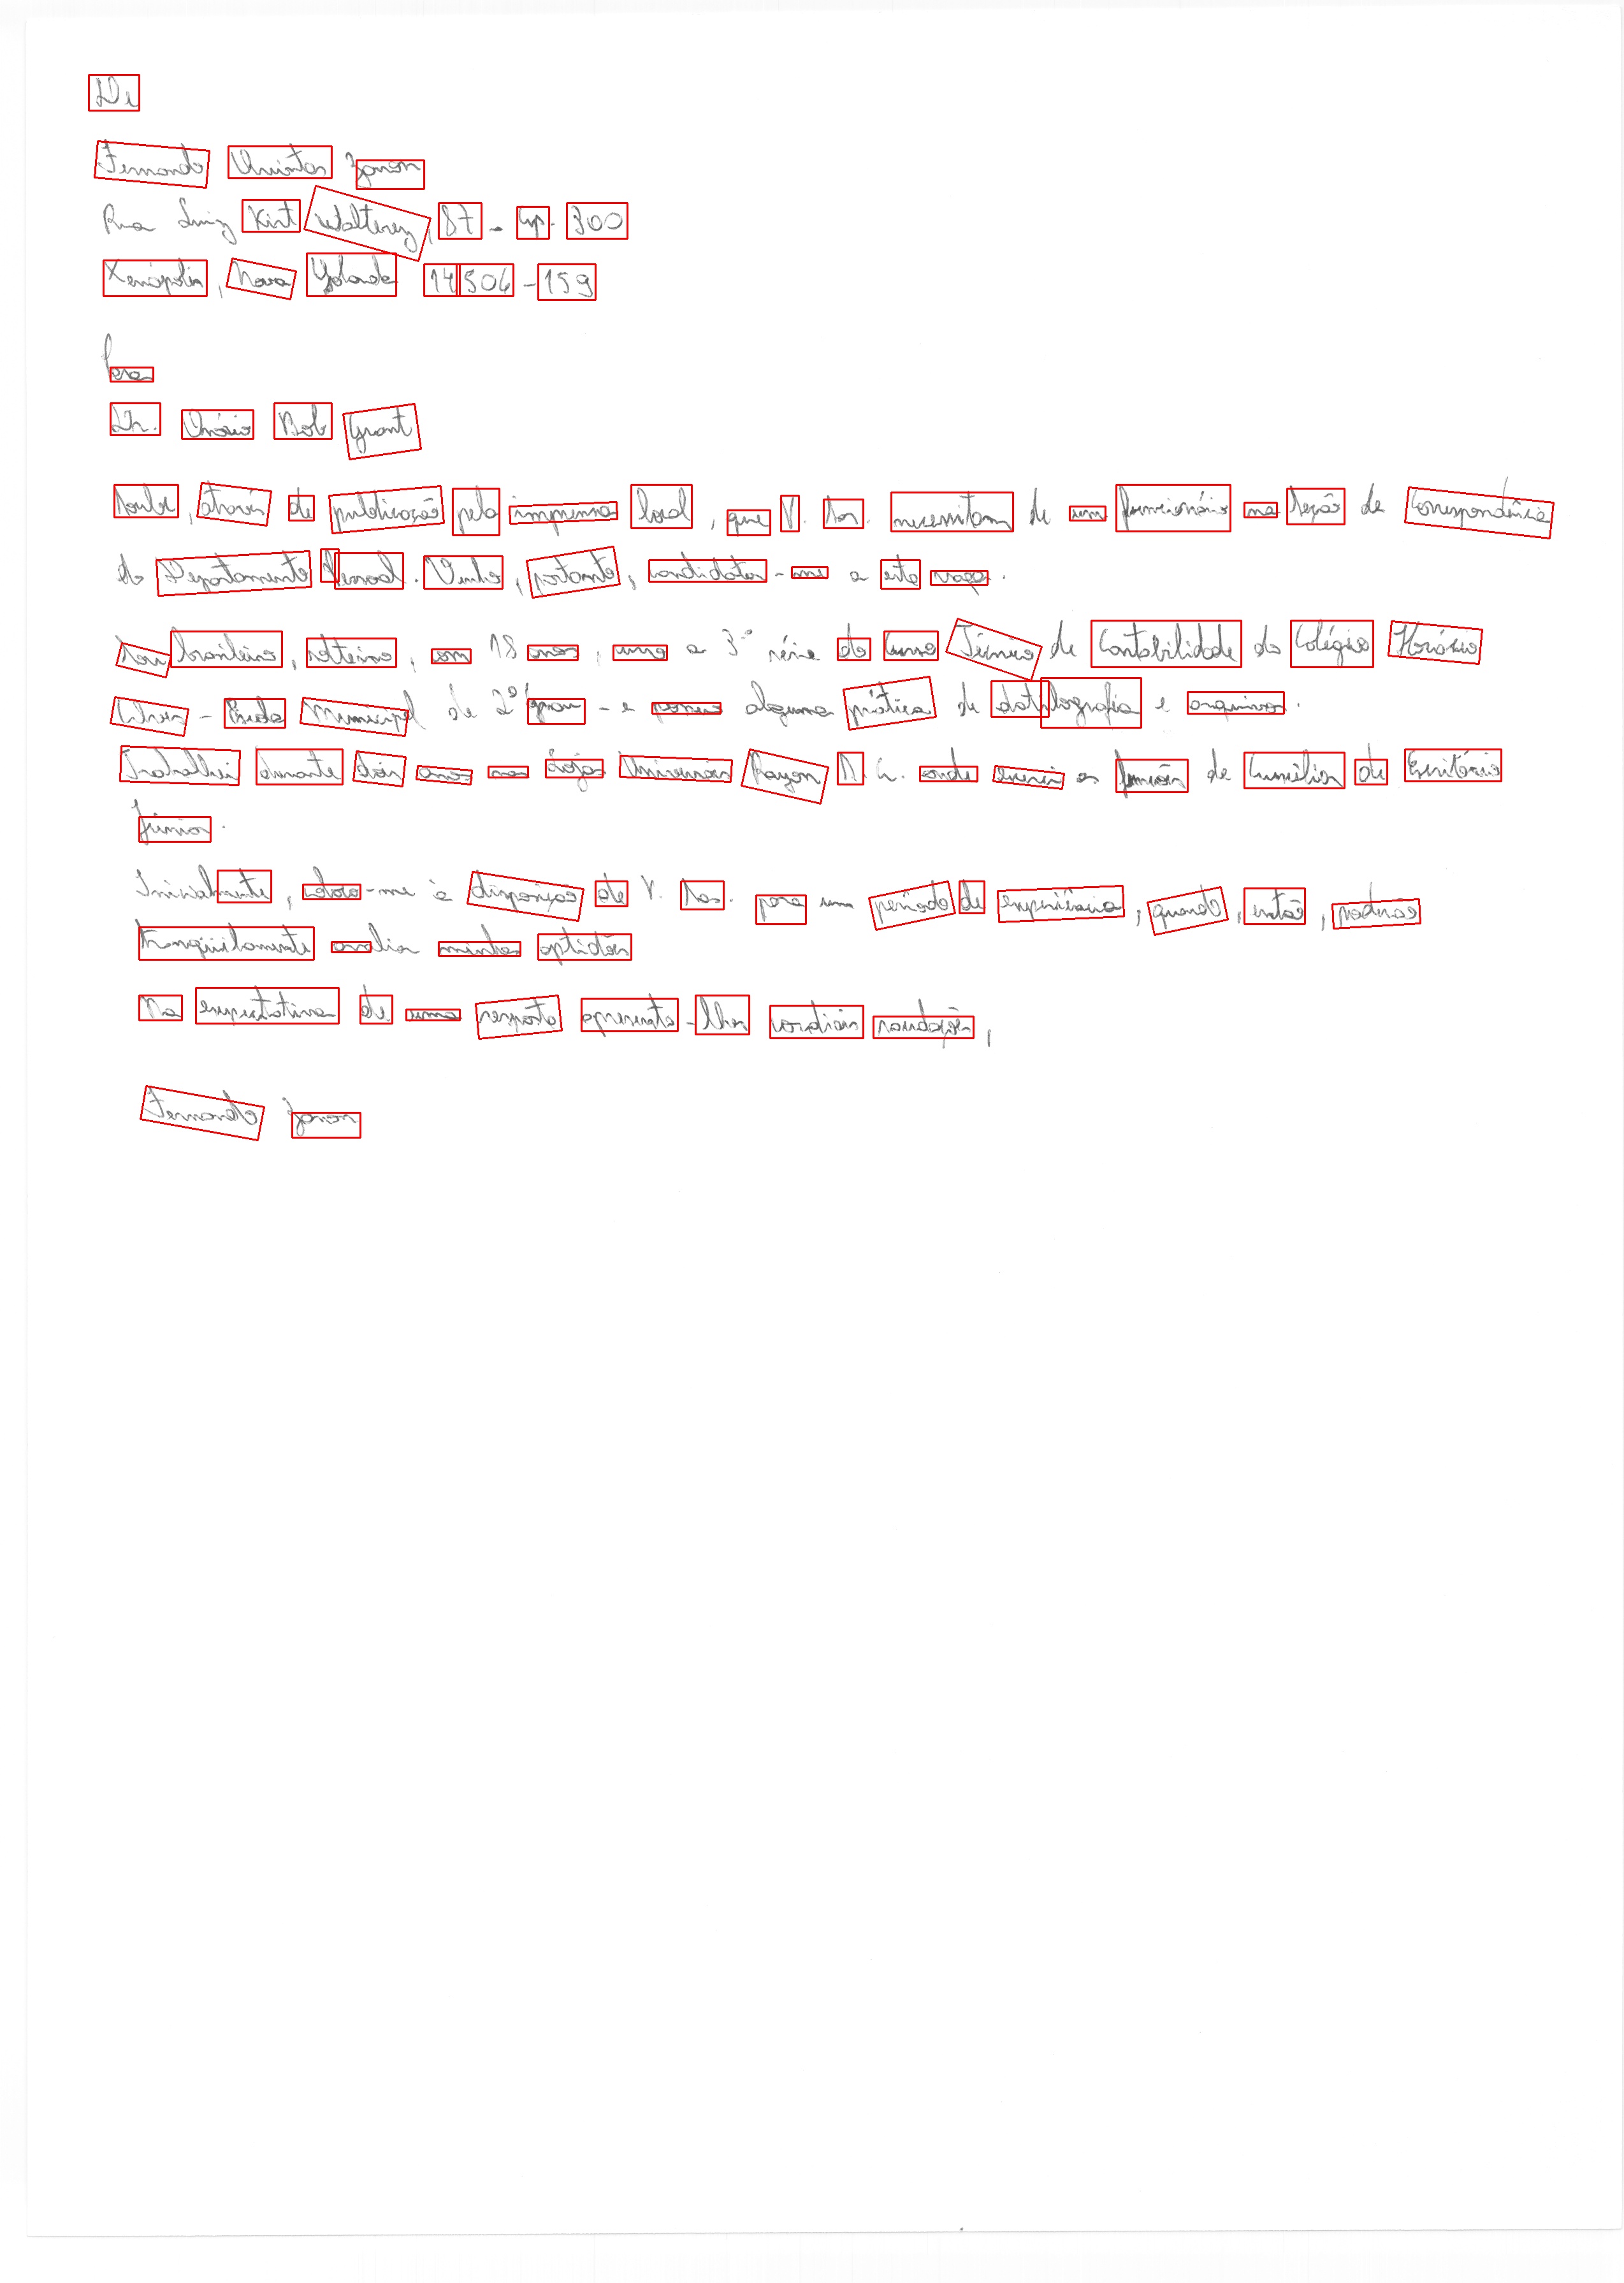 De
Fernando Quintas Zanon
Rua Luiz Kirt Walterez, 87 - ap. 300
Xenópolis, Nova Yolanda 14506-159
Para
Dr. Mário Bob Grant
Soube, através de publicação pela imprensa local, que V. Sas. necessitam de um funcionário na Seção de Correspondência
do Departamento Pessoal. Venho, portanto, candidatar-me a esta vaga.
Sou brasileiro, solteiro, com 18 anos, curso a 3ª série do Curso Técnico de Contabilidade do Colégio Horácio
Alves - Rede Municipal de 2º grau - e possuo alguma prática de datilografia e arquivos.
Trabalhei durante dois anos nas Lojas Universais Rayon S. A. onde exerci as funções de Auxiliar de Escritório
Júnior.
Inicialmente, coloco-me à disposição de V. Sas. para um período de experiência, quando, então, poderão
tranqüilamente avaliar minhas aptidões
Na expectativa de uma resposta apresento-lhes cordiais saudações,
Fernando Zanon